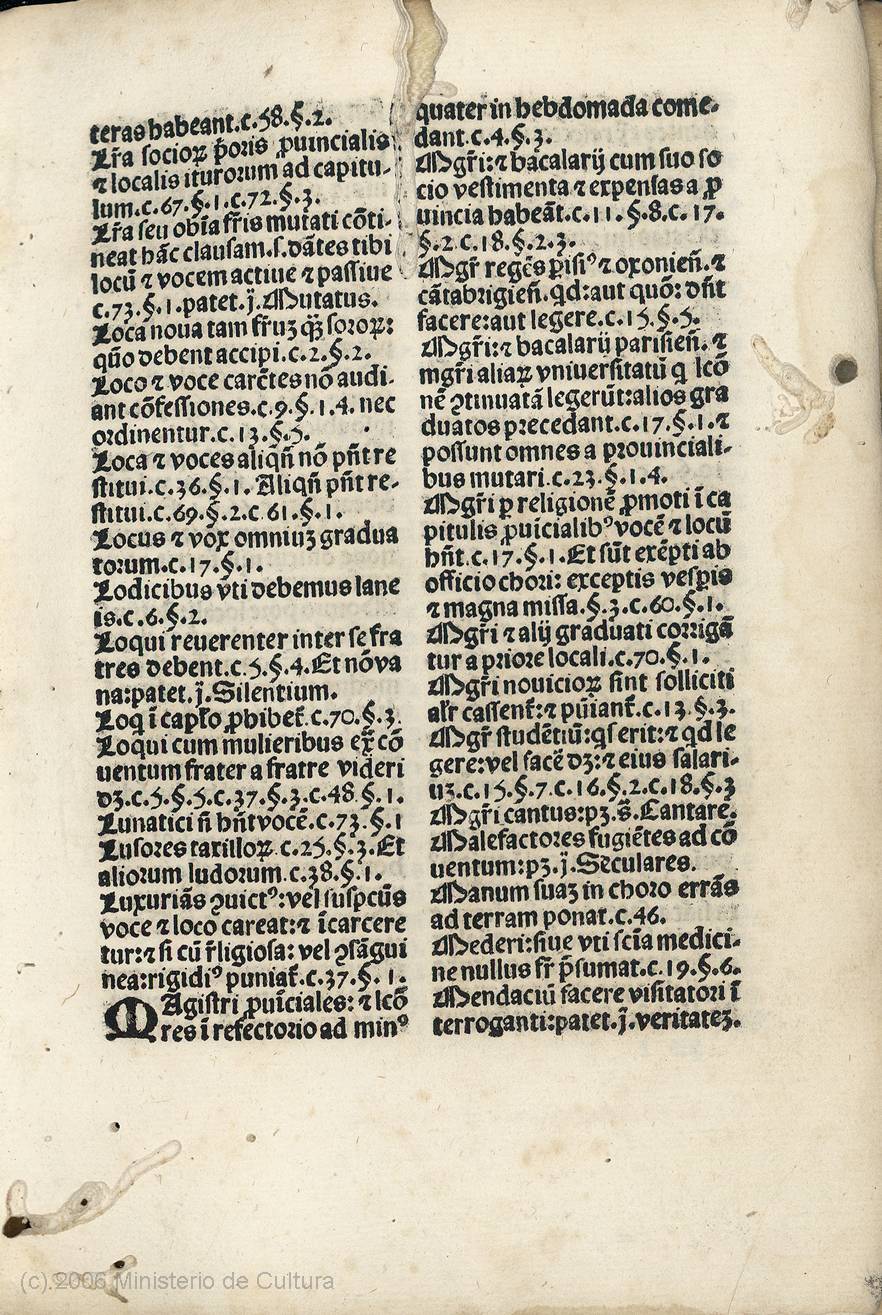 teras habeant.c.58.§.2.
Lr̄a socioꝝ p̄oris ꝓuincialis
⁊ localis iturorum ad capitu-
lum.c.67.§.1.c.72.§.3.
Lr̄a seu ob̄ia fr̄is mutati cōti-
neat hāc clausam.s.dātes tibi
locū ⁊ vocem actiue ⁊ passiue
c.73.§.1.patet.j̄.Mutatus.
Loca noua tam fr̄uꝫ qꝫ̄ soroꝝ:
qūo debent accipi.c.2.§.2.
Loco ⁊ voce carētes nō audi-
ant cōfessiones.c.9.§.1.4. nec
ordinentur.c.13.§.5.
Loca ⁊ voces aliqn̄ nō pn̄t re
stitui.c.36.§.1. Aliqn̄ pn̄t re-
stitui.c.69.§.2.c.61.§.1.
Locus ⁊ vox omniuꝫ gradua
torum.c.17.§.1.
Lodicibus vti debemus lane
is.c.6.§.2.
Loqui reuerenter inter se fra
tres debent.c.5.§.4.Et nō va
na:patet.j̄.Silentium.
Loq̄ ī capło ꝓhibet᷑.c.70.§.3.
Loqui cum mulieribus ex̄ cō
uentum frater a fratre videri
dꝫ.c.5.§.5.c.37.§.3.c.48.§.1.
Lunatici n̄ hn̄t vocē.c.73.§.1
Lusores taxilloꝝ.c.25.§.3.Et
aliorum ludorum.c.38.§.1.
Luxuriās ꝯuictꝰ:vel suspcūs
voce ⁊ loco careat:⁊ īcarcere
tur:⁊ si cū r̄ligiosa: vel ꝯsāgui
nea:rigidiꝰ puniat᷑.c.37.§.1.
MAgistri ꝓuīciales: ⁊ lcō
res ī refectorio ad minꝰ
quater in hebdomada come-
dant.c.4.§.3.
Mgr̄i:⁊ bacalarij cum suo so
cio vestimenta ⁊ expensas a ꝓ
uincia habeāt.c.11.§.8.c.17.
§.2.c.18.§.2.3.
Mgr̄ regēs ꝑisiꝰ ⁊ oxonien̄.⁊
cātabrigien̄.qd:aut quō: dn̄t
facere:aut legere.c.15.§.5.
Mgr̄i:⁊ bacalarij parisien̄.⁊
mgr̄i aliaꝝ vniuersitatū q̄ lcō
nē ꝯtinuatā legerūt:alios gra
duatos precedant.c.17.§.1.⁊
possunt omnes a prouinciali-
bus mutari.c.23.§.1.4.
Mgr̄i ꝑ religionē ꝓmoti ī ca
pitulis ꝓuīcialibꝰ vocē ⁊ locū
hn̄t.c.17.§.1.Et sūt exēpti ab
officio chori: exceptis vesꝑis
⁊ magna missa.§.3.c.60.§.1.
Mgr̄i ⁊ alij graduati corrigā
tur a priore locali.c.70.§.1.
Mgr̄i nouicioꝝ sint solliciti
alr̄ cassent᷑:⁊ pūiant᷑.c.13.§.3.
Mgr̄ studētiū:qs̄ erit:⁊ qd le
gere:vel facē dꝫ:⁊ eius salari-
uꝫ.c.15.§.7.c.16.§.2.c.18.§.3
Mgr̄i cantus:pꝫ.s̄.Cantare.
Malefactores fugiētes ad cō
uentum:pꝫ.j̄.Seculares.
Manum suaꝫ in choro errās
ad terram ponat.c.46.
Mederi:siue vti scīa medici-
ne nullus fr̄ p̄sumat.c.19.§.6.
Mendaciū facere visitatori ī
terroganti:patet.j̄.veritateꝫ.
(c) 2006 Ministerio de Cultura